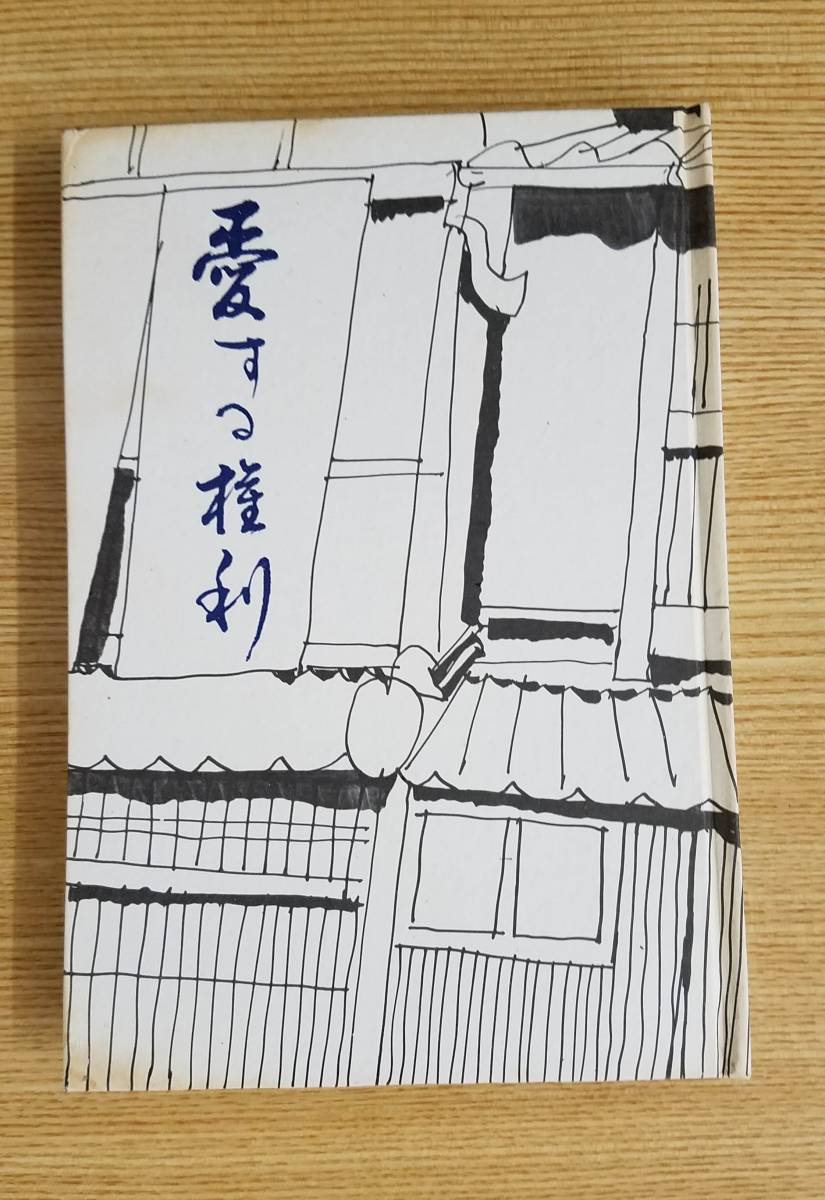 愛する権利